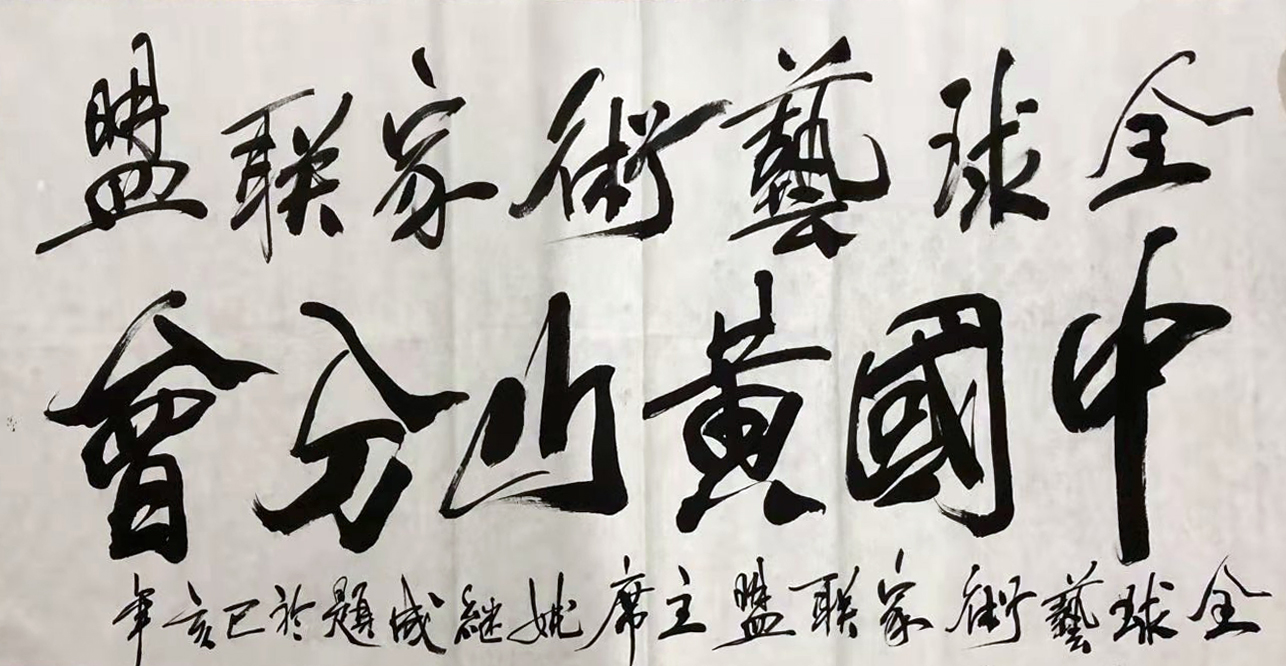 全球藝術家联盟
中國黃山分會
全球藝術家联盟主席姚继成題於己亥年